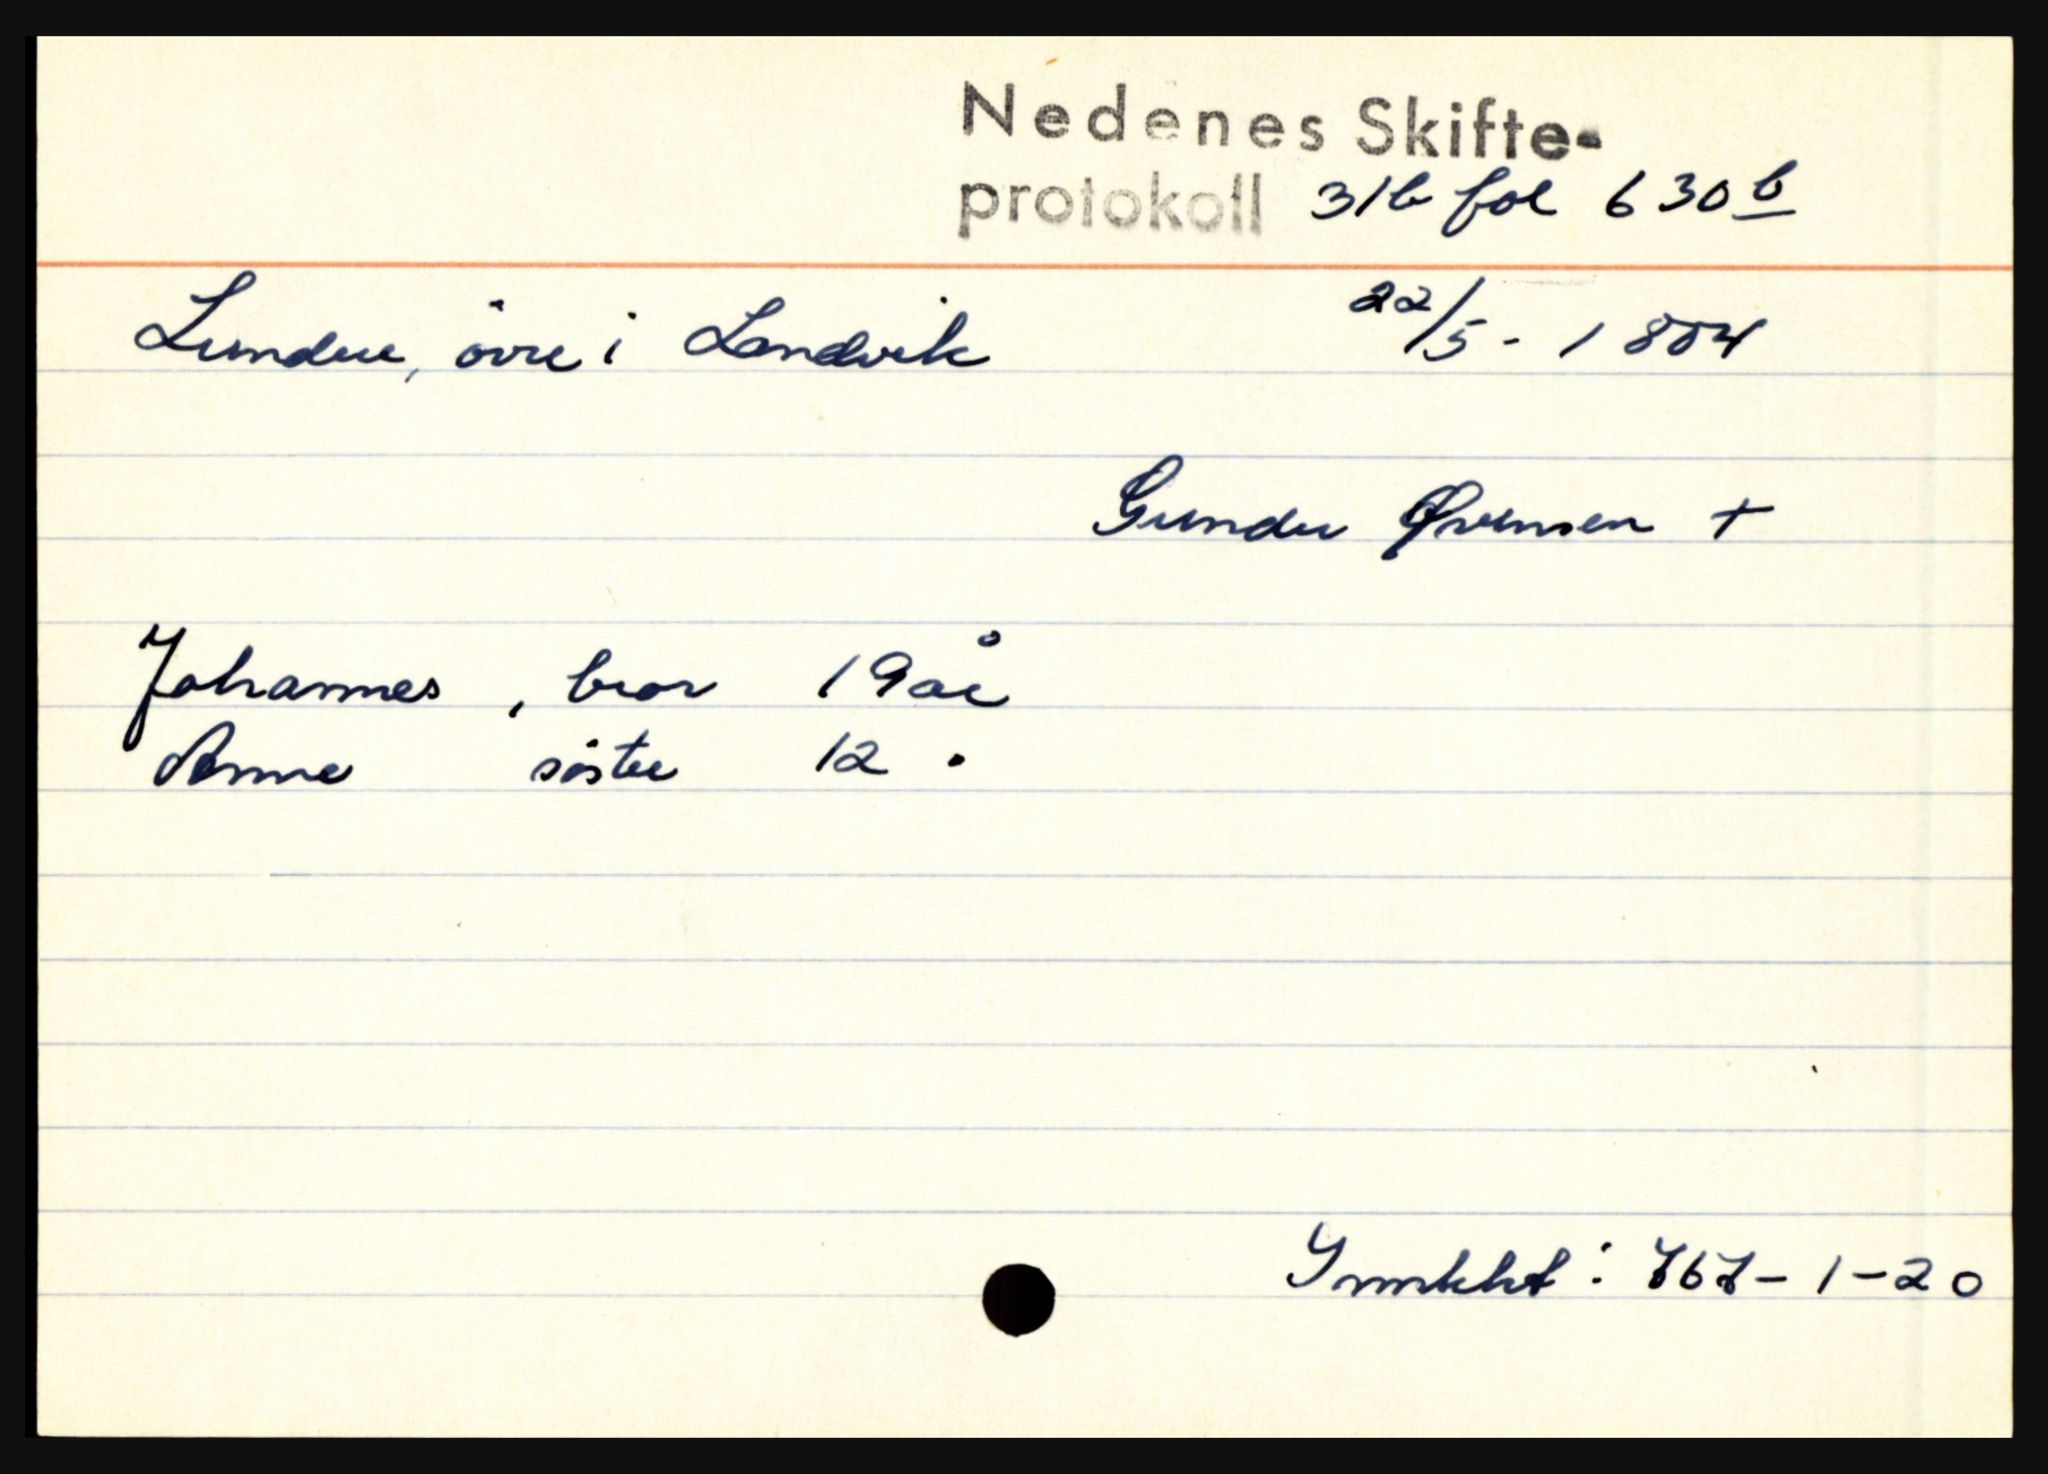 Nedenes Skifte-
protokoll 31b fol 630 b
Lunden, övre i Landvik 22/5 - 1804
Gunder Øvensen +
Johannes , bror 19 år
Anne söster 12 "
767 - 1 - 20